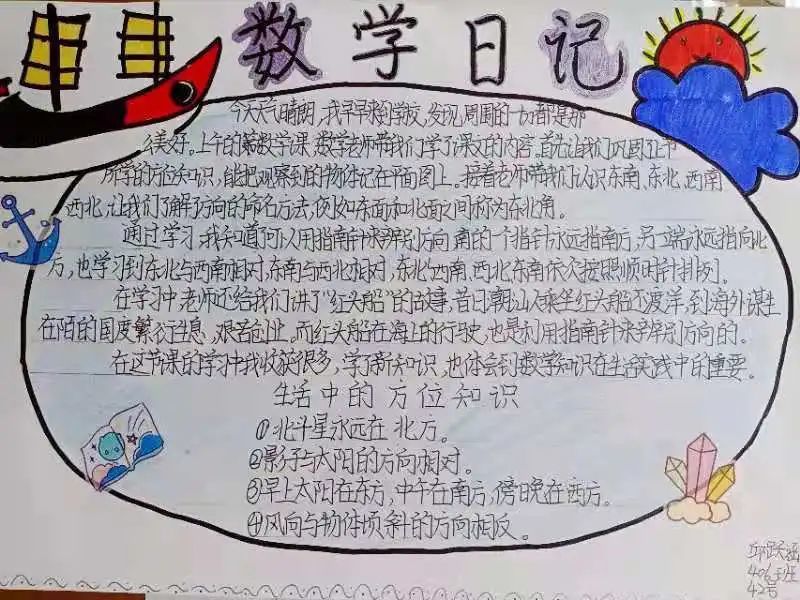 数学日记
今天天气晴朗，我早早来到学校，发现周围的一切都是那
么美好。上午的第数学课，数学老师带我们学了课文的内容。首先让我们巩固了上节
所学的方位知识，能把观察到的物体记在平面图上。接着老师带我们认识东南、东北、西南
西北，让我们了解了方向的命名方法，例如东面和北面之间称为东北角。
通过学习，我知道可以用指南针来辨别方向，南的一个指针永远指南方，另一端永远指向北
方，也学习到东北与西南相对，东南与西北相对，东北、西南、西北、东南依次按照顺时针排列。
在学习中，老师还给我们讲了“红头船”的故事，昔日潮汕人乘坐红头船远渡洋，到海外谋生
在陌的国度繁衍生息，艰苦创业。而红头船在海上的行驶，也是利用指南针来辨别方向的。
在这节课的学习中我收获很多，学了新知识，也体会到数学知识在生活实践中的重要。
生活中的方位知识
①北斗星永远在北方。
②影子与太阳的方向相对。
③早上太阳在东方，中午在南方，傍晚在西方。
④风向与物体倾斜的方向相反。
406班
42号